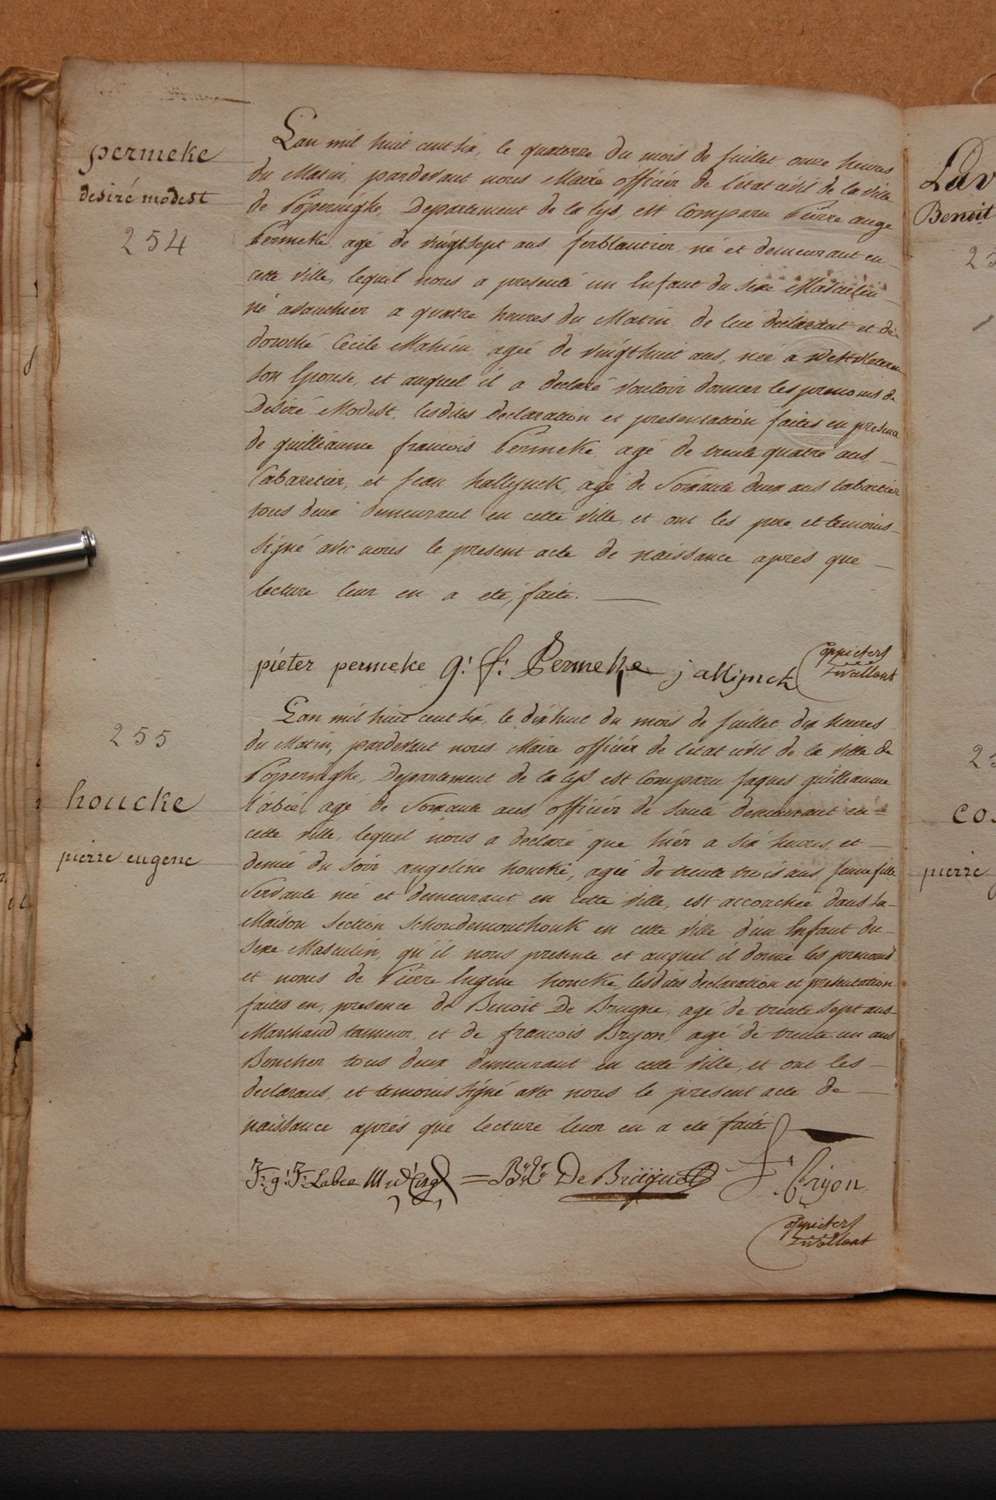 permeke
desiré modest
254
L'an mil huit cent six, le quatorze du mois de juillet onze heures
du Matin, pardevant nous Maire officier de l'état civil de la ville
de Poperinghe, Departement de la lys, est Comparu Pierre ange
Permeke, agé de vingtsept ans ferblantier, né et demeurant en
cette ville, lequel nous a presenté un Enfant du sexe Masculin
né avanthier a quatre heures du Matin de lui declarant et de
Cecile Mahieu agée de vingthuit ans, née a
son Epouse, et auquel il a declaré vouloir donner les prenoms de
Desiré Modest, lesdites declaration et presentation faites en presence
de guilliaume francois Permeke agé de trente quatre ans
Cabaretier, et Jean hallynck, agé de Soixante deux ans Cabaretier
tous deux demeurant en cette ville, et ont les pere et temoins
signé avec nous le present acte de naissance apres que
lecture leur en a eté faite.
piéter permeke g: f: Permeke j allijnck
255
houcke
pierre eugene
L'an mil huit cent six, le dixhuit du mois de juillet dix heures
du Matin, pardevant nous Maire officier de l'etat civil de la ville de
Poperinghe, Departement de la lys est Comparu Jaques guilleaume
Labée, agé de Soixante ans, officier de Santé demeurant en
cette ville, lequel nous a declaré que hier a six heures et
demie du Soir angeline houcke, agée de trente trois ans, Jeune fille
Servante née et demeurant en cette ville, est accouchée dans la
Maison Section Schoudemonchouk en cette ville d'un Enfant du
sexe Masculin, qu'il nous presente et auquel il donne les prenoms
et noms de Pierre Eugene houcke, lesdites declaration et presentation
faites en presence de Benoit De Bruyne, agé de trente sept ans
Marchand tanneur, et de francois Bryon, agé de trente un ans
Boucher tous deux demeurant en cette ville, et ont les
declarans, et temoins signé avec nous le present acte de
naissance apres que lecture leur en a eté faite
J: g: J: Labee = De Bruijne F: Brijon
Lav
Benoit
cos
pierre